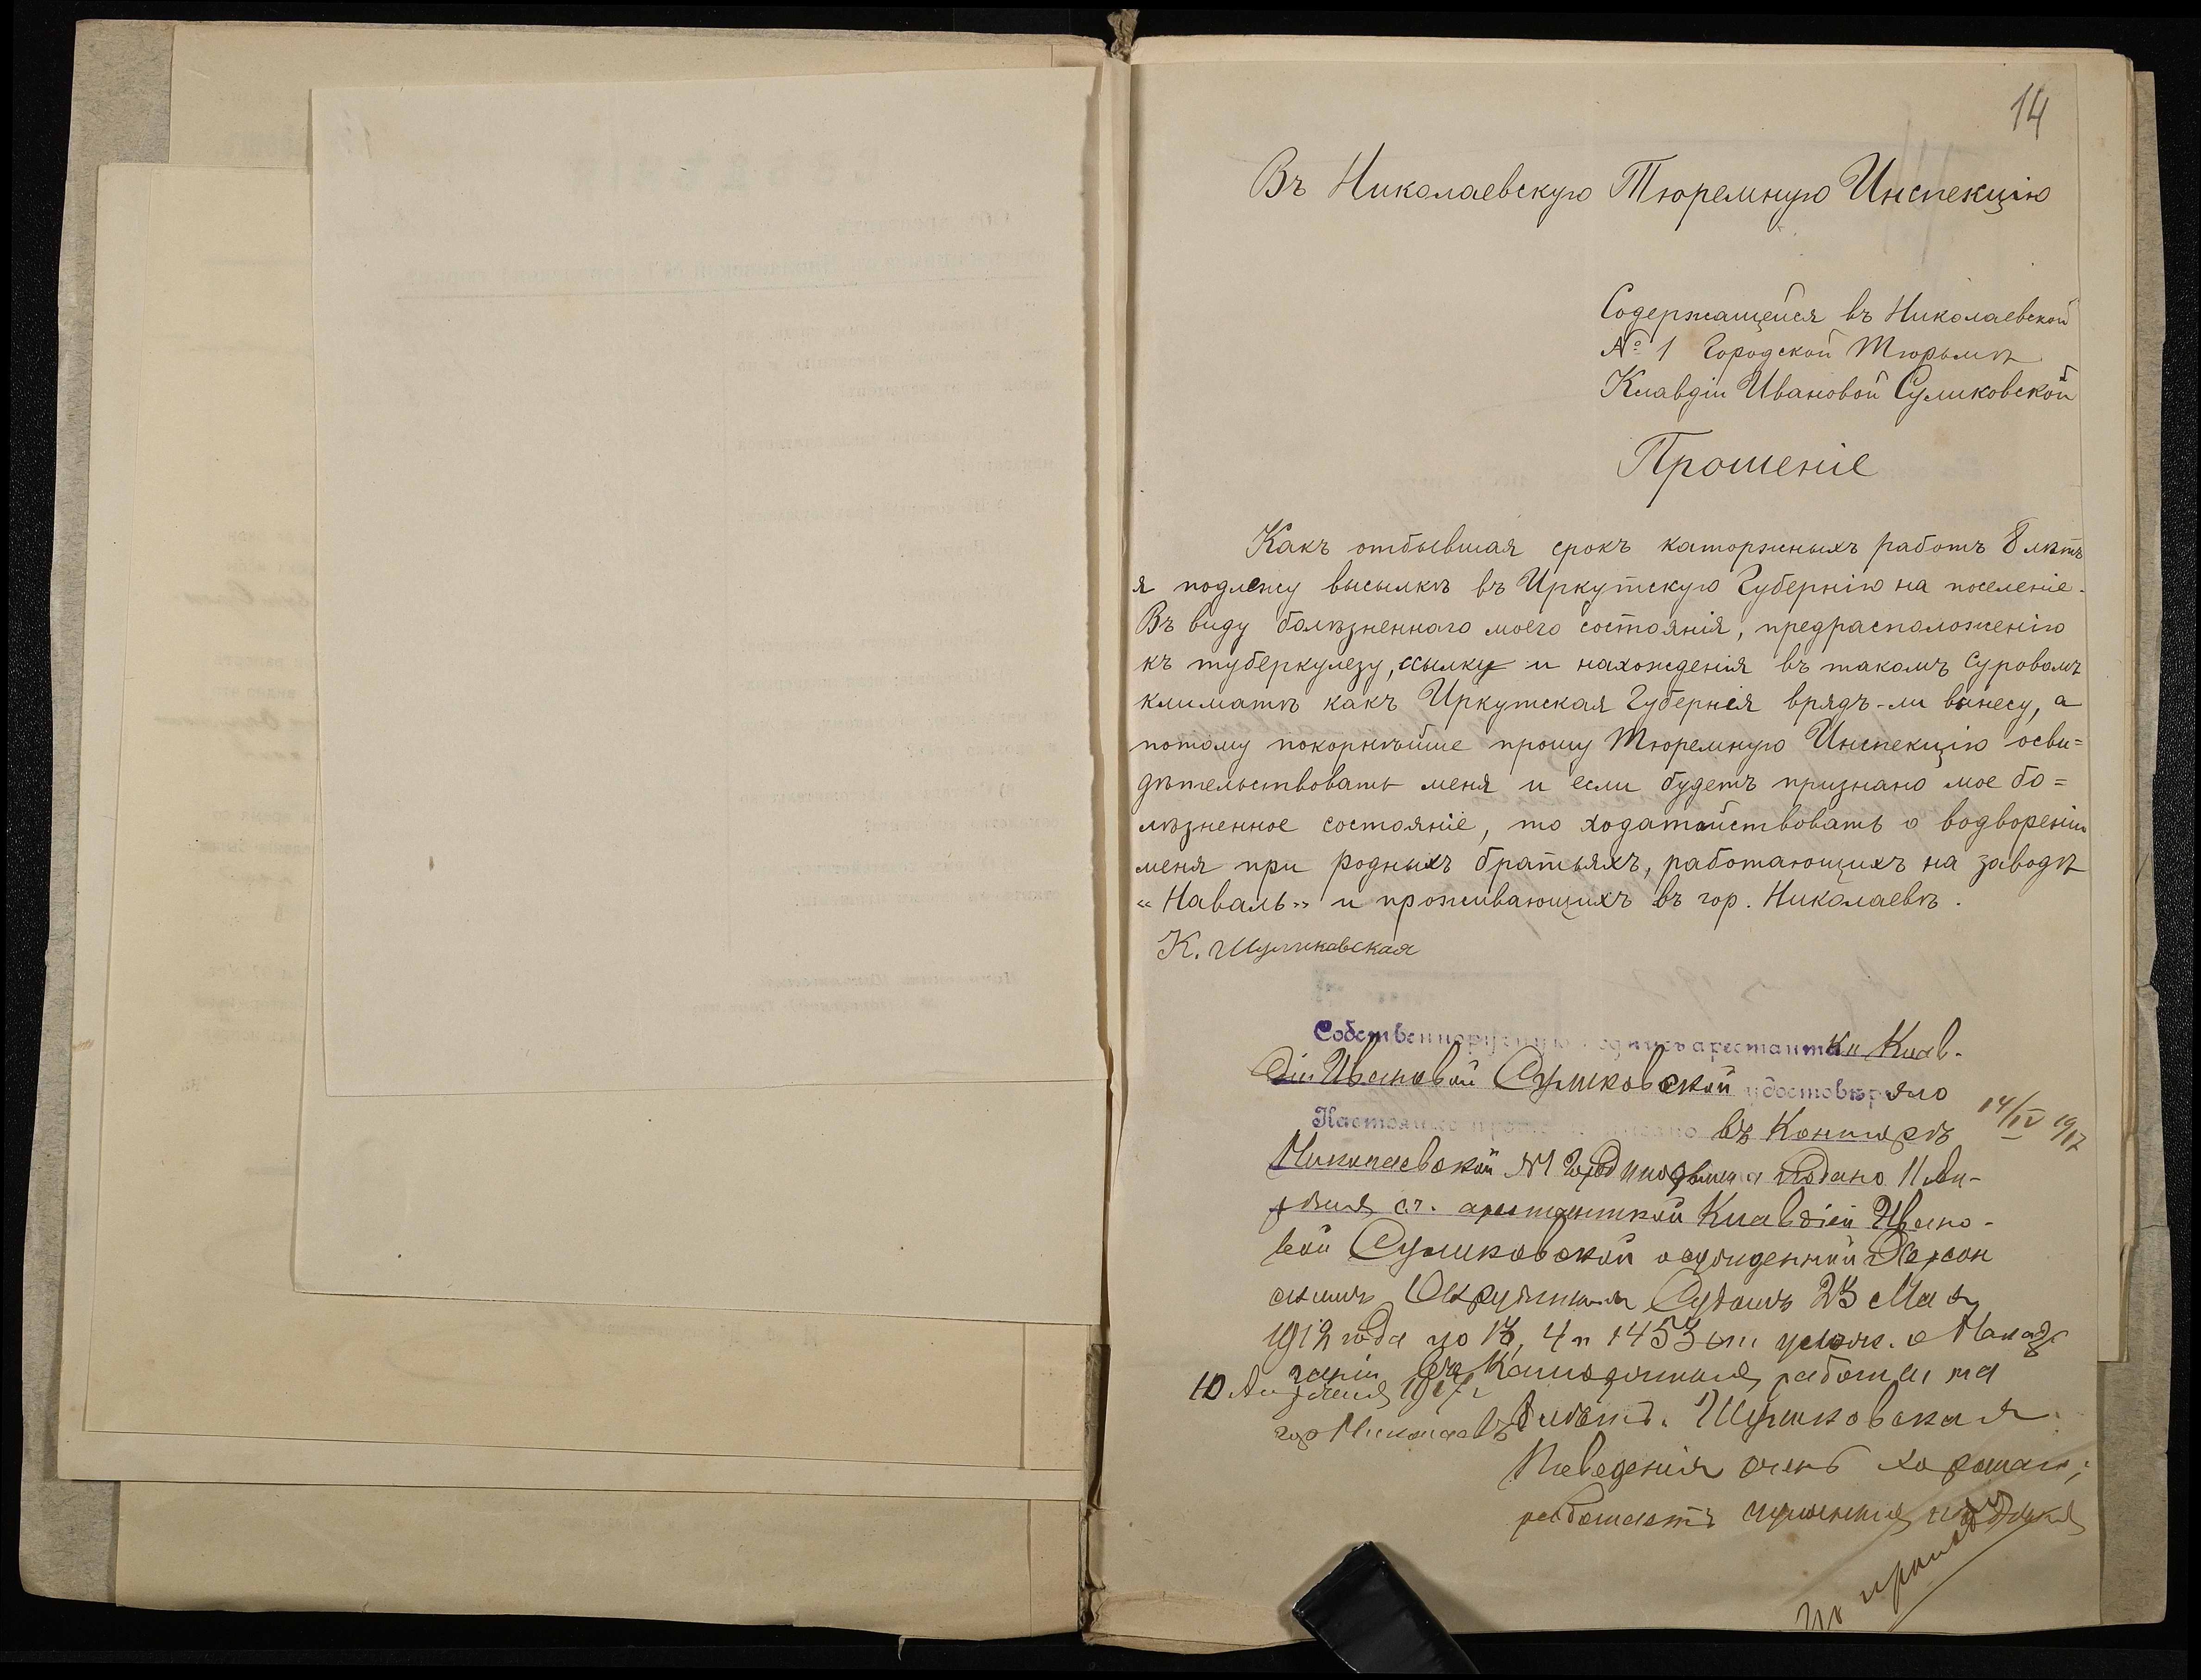 14
Въ Николаевскую Тюремную Инспекцію
Содержащейся въ Николаевской
№ 1 Городской Тюрьмѣ
Клавдіи Ивановой Суликовской
Прошеніе
Какъ отбывшая срокъ каторжныхъ работъ 8 лѣтъ
я подлежу высылкѣ въ Иркутскую Губернію на поселеніе.
Въ виду болѣзненнаго моего состоянія, предрасположенію
къ туберкулезу, ссылку и нахожденія въ такомъ суровомъ
климатѣ какъ Иркутская Губернія врядъ-ли вынесу, а
потому покорнѣйше прошу Тюремную Инспекцію осви=
дѣтельствовать меня и если будетъ признано мое бо=
лѣзненное состояніе, то ходатайствовать о водвореніи
меня при родныхъ братьяхъ, работающихъ на заводѣ
«Наваль» и проживающихъ въ гор. Николаевѣ.
К. Шуликовская
Собственноручную подпись арестантки Клав-
діи Ивановой Суликовской удостовѣряю
Настоящее прошеніе писано въ Конторѣ
14/IV 1917
Николаевской №1 Город тюрьмы и подано 11 Ап-
рѣля с.г. арестанткой Клавдіей Ивано-
вой Суликовской осужденной Херсон
скимъ Окружнымъ Судомъ 23 Мая
1912 года по 13, 4 п 1453 ст. улож. о Наказ
заніи въ Каторжныя работы на
10 Апрѣля 1917 г.
гор Николаевъ
8 лѣтъ. Шуликовская
Поведенія очень хорошаго;
работаетъ